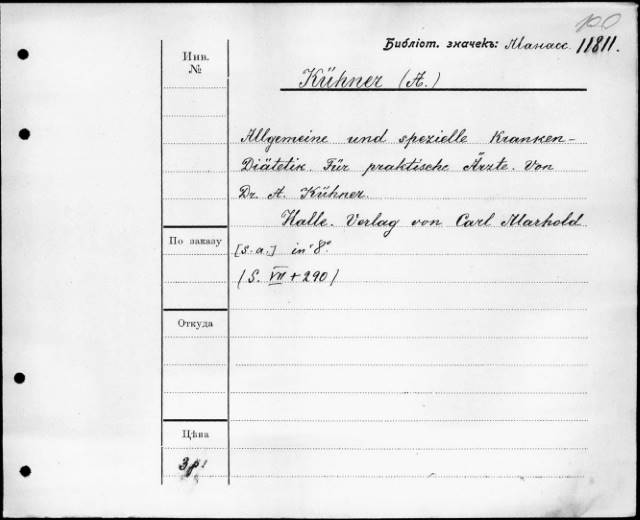 p0
Библіот. значекъ: Манасс. 11811.
Инв.
№
Kühner (A.)
Allgemeine und spezielle Kranken-
Diätetik. Für praktische Ärzte. Von
Dr. A. Kühner.
Halle. Verlag von Carl Marhold
По заказу
[s. a.] in 8°.
(S. VII + 290)
Откуда
Цѣна
3р